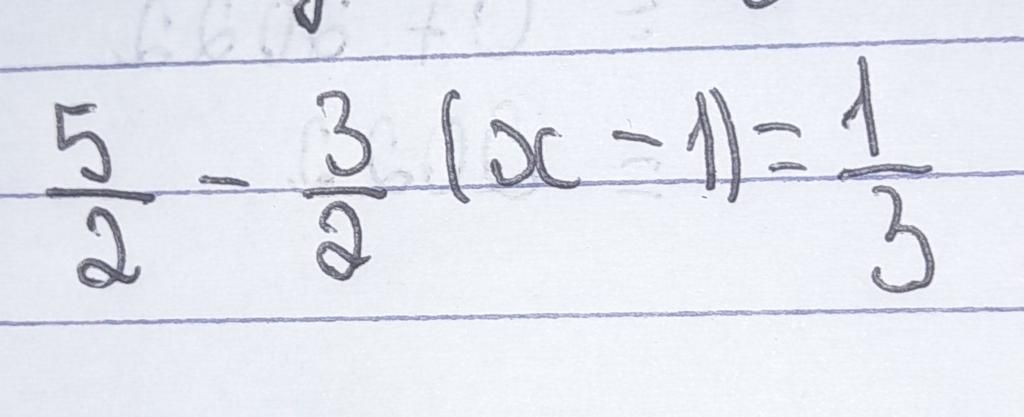 5/2 - 3/2 (x - 1) = 1/3